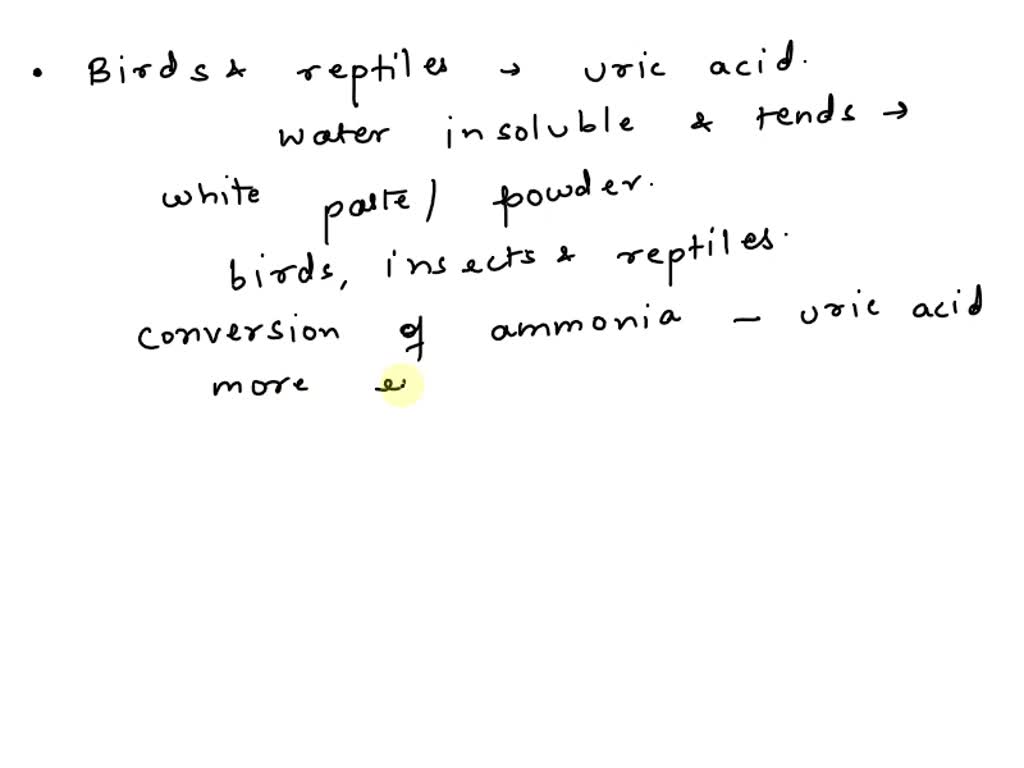 • Birds & reptiles → uric acid.
water insoluble & tends →
white paste / powder.
birds, insects & reptiles.
conversion of ammonia - uric acid
more e